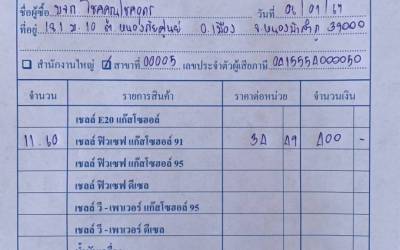 ชื่อผู้ซื้อ หจก. โชคคูณโชคถาวร วันที่ 04/01/67
ที่อยู่ 181 ม.10 ต.หนองภัยศูนย์ อ.เมือง จ.หนองบัวลำภู 39000
สำนักงานใหญ่ ☑ สาขาที่ 00005 เลขประจำตัวผู้เสียภาษี
จำนวน รายการสินค้า ราคาต่อหน่วย จำนวนเงิน
เชลล์ E20 แก๊สโซฮอล์
11.60 เชลล์ ฟิวเซฟ แก๊สโซฮอล์ 91 34 49 400 -
เชลล์ ฟิวเซฟ แก๊สโซฮอล์ 95
เชลล์ ฟิวเซฟ ดีเซล
เชลล์ วี - เพาเวอร์ แก๊สโซฮอล์ 95
เชลล์ วี - เพาเวอร์ ดีเซล